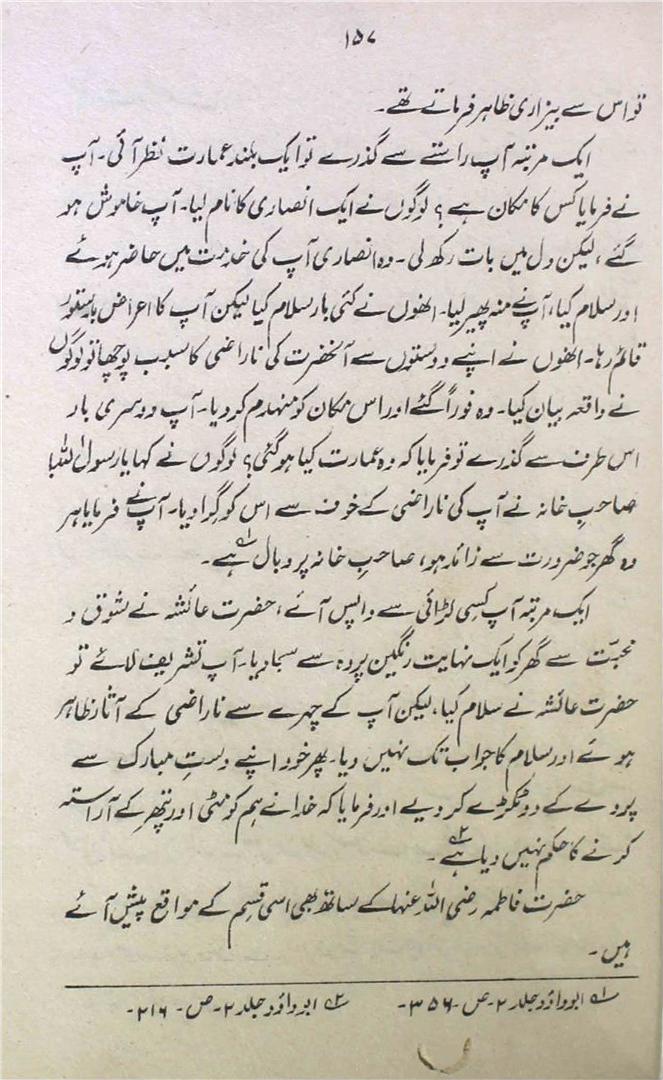 ۱۵۷
تو اس سے بیزاری ظاہر فرماتے تھے۔
ایک مرتبہ آپ راستے سے گذرے تو ایک بلند عمارت نظر آئی۔ آپ
نے فرمایا کس کا مکان ہے؟ لوگوں نے ایک انصاری کا نام لیا۔ آپ خاموش ہو
گئے، لیکن دل میں بات رکھ لی۔ وہ انصاری آپ کی خدمت میں حاضر ہوئے
اور سلام کیا، آپ نے منہ پھیر لیا۔ انھوں نے کئی بار سلام کیا لیکن آپ کا اعراض بدستور
قائم رہا۔ انھوں نے اپنے دوستوں سے آنحضرت کی ناراضی کا سبب پوچھا تو لوگوں
نے واقعہ بیان کیا۔ وہ فوراً گئے اور اس مکان کو منہدم کر دیا۔ آپ دوسری بار
اس طرف سے گذرے تو فرمایا کہ وہ عمارت کیا ہو گئی؟ لوگوں نے کہا یا رسول اللہ!
صاحبِ خانہ نے آپ کی ناراضی کے خوف سے اس کو گرا دیا۔ آپ نے فرمایا ہر
وہ گھر جو ضرورت سے زائد ہو، صاحبِ خانہ پر وبال ہے۔ ۱؎
ایک مرتبہ آپ کسی لڑائی سے واپس آئے، حضرت عائشہ نے شوق و
محبّت سے گھر کو ایک نہایت رنگین پردہ سے سجا دیا۔ آپ تشریف لائے تو
حضرت عائشہ نے سلام کیا، لیکن آپ کے چہرے سے ناراضی کے آثار ظاہر
ہوئے اور سلام کا جواب تک نہیں دیا۔ پھر خود اپنے دستِ مبارک سے
پردے کے دو ٹکڑے کر دیے اور فرمایا کہ خدا نے ہم کو مٹی اور پتھر کے آراستہ
کرنے کا حکم نہیں دیا ہے۔ ۲؎
حضرت فاطمہ رضی اللہ عنہا کے ساتھ بھی اسی قسم کے مواقع پیش آئے
ہیں۔
۱؎ ابو داؤد جلد ۲۔ ص۔ ۳۵۶۔ ۲؎ ابو داؤد جلد ۲۔ ص۔ ۲۱۶۔